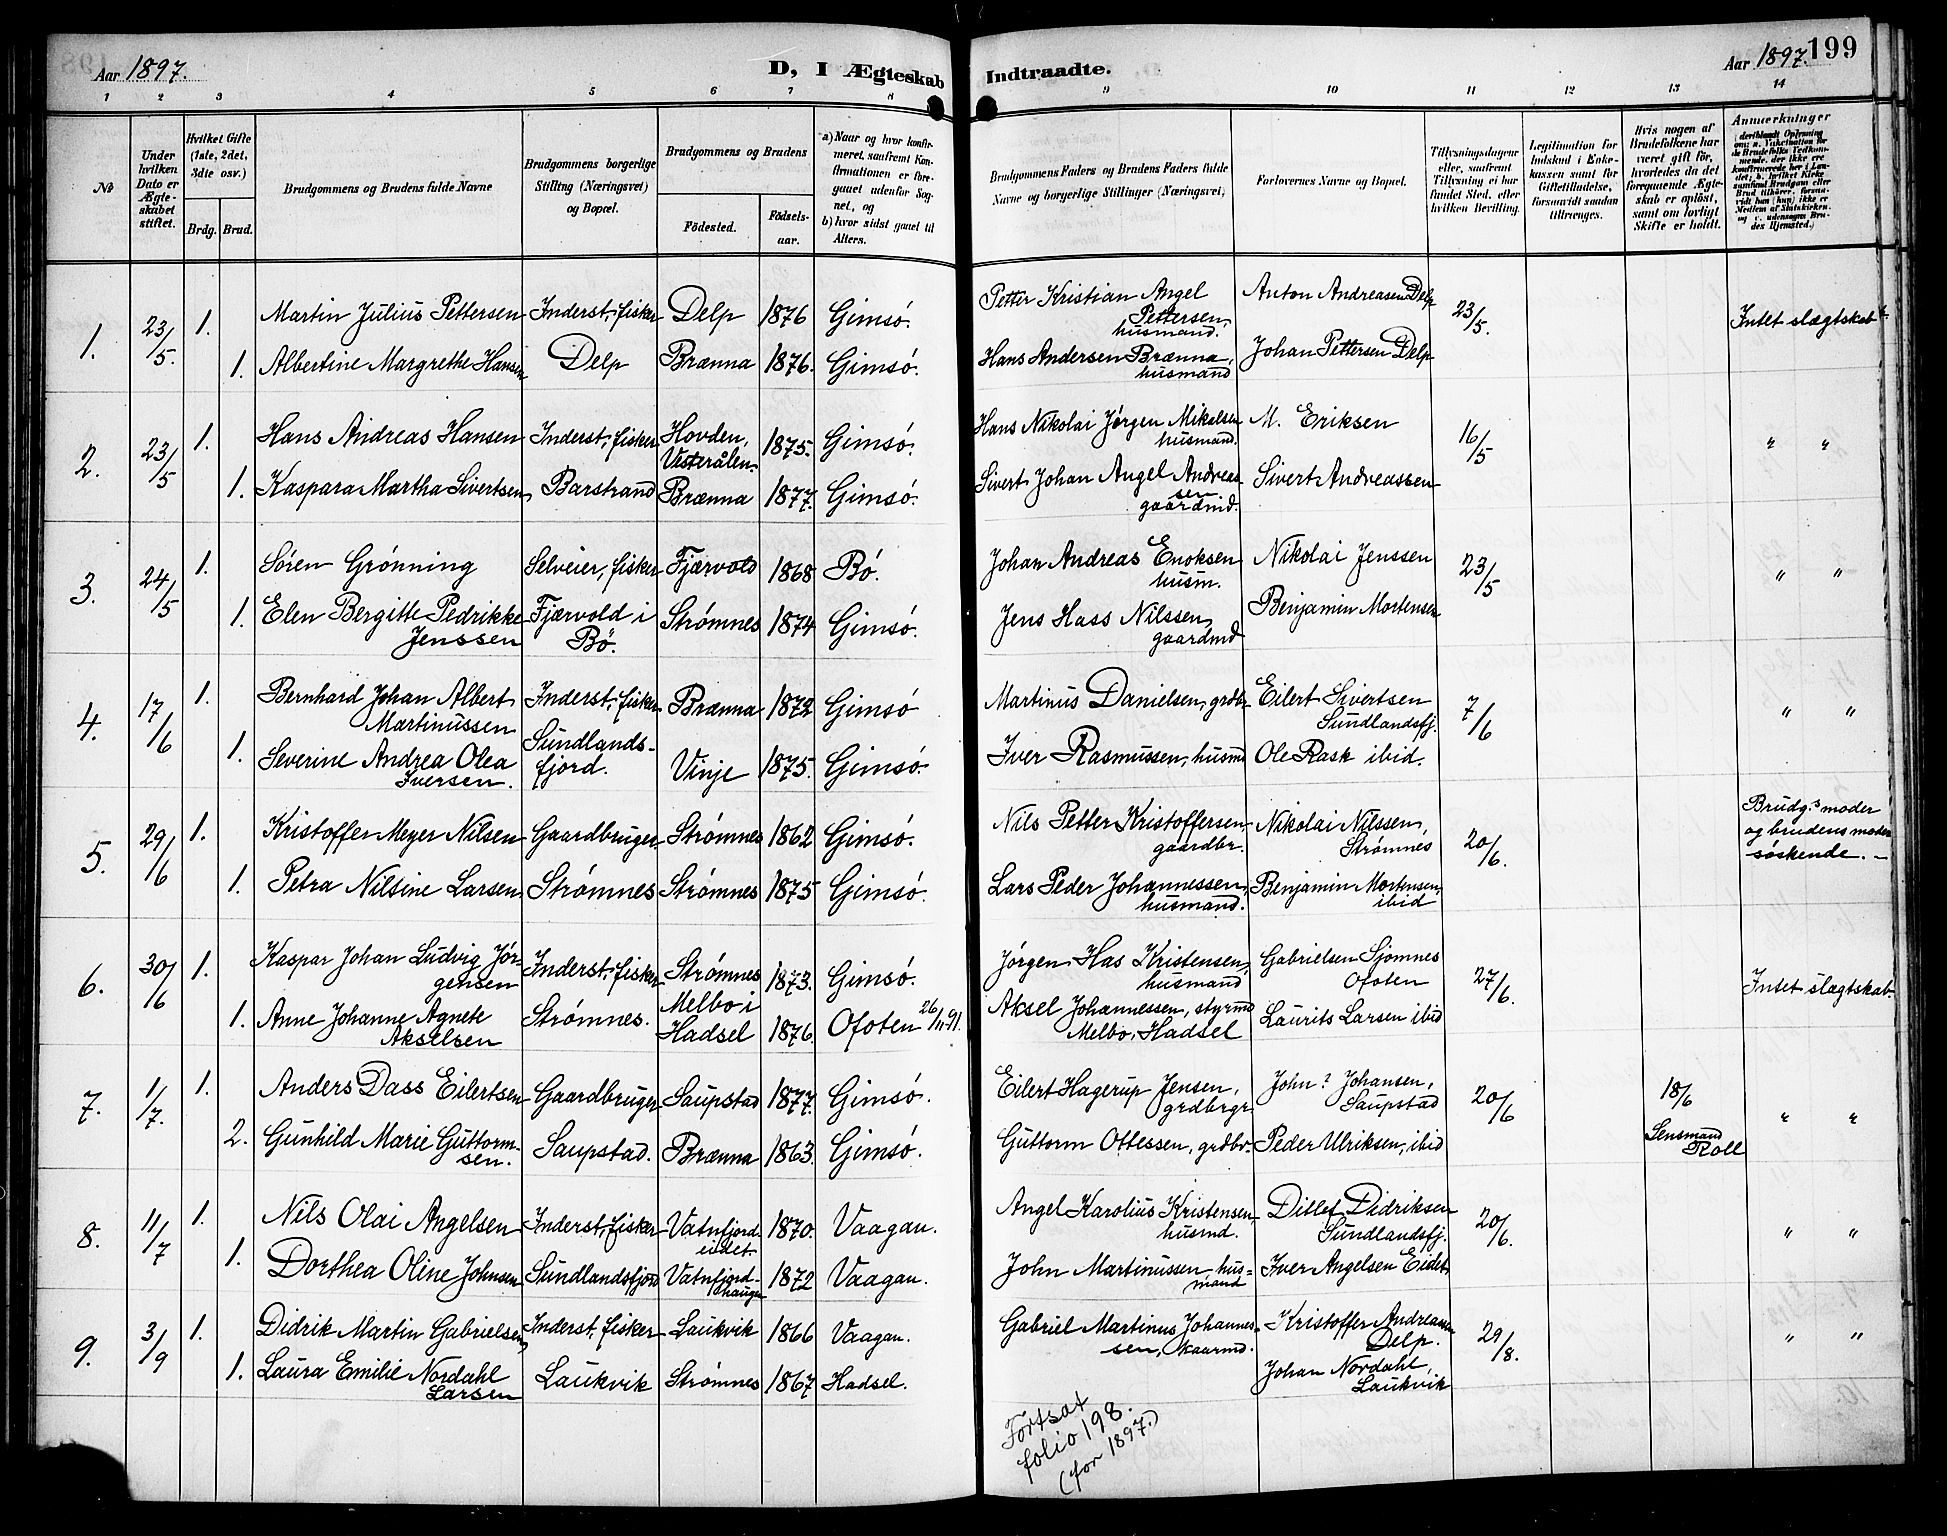 Aar 1897.
D, I Ægteskab Indtraadte.
Aar 1897.
199
1 2 3 4 5 6 7 8 9 10 11 12 13 14
No
Under hvilken Dato er Ægte-skabet stiftet.
Hvilket Gifte (1ste, 2det, 3die osv.)
Brdg. Brud.
Brudgommens og Brudens fulde Navne
Brudgommens borgerlige Stilling (Næringsvei) og Bopæl.
Brudgommens og Brudens
Fødested.
Fødsels-aar.
a) Naar og hvor konfir-meret, saafremt Kon-firmationen er fore-gaaet udenfor Sog-net, og
b) hvor sidst gaaet til Alters.
Brudgommens Faders og Brudens Faders fulde Navne og borgerlige Stillinger (Næringsvei)
Forlovernes Navne og Bopæl.
Tillysningsdagene eller, saafremt Tillysning ei har fundet Sted, efter hvilken Bevilling.
Legitimation for Indskud i Enke-kassen samt for Giftetilladelse, forsaavidt saadan tiltrænges.
Hvis nogen af Brudefolkene har været gift før, hvorledes da det foregaaende Ægte-skab er opløst, samt om lovligt Skifte er holdt.
Anmærkninger
1. 23/5. 1. Martin Julius Pettersen Inderst, fisker Delp 1876 Gimsó. Petter Kristian Angel Pettersen, husmand. Anton Andreasen Delp 23/5. Intet slægtskab
1. Albertine Margrethe Hansen Delp Brænna 1876. Gimsó. Hans Andersen Brænna, husmand Johan Pettersen Delp
2. 23/5 1. Hans Andreas Hansen Inderst, fisker Hovden, Vesterålen. 1875. Gimsó. Hans Nikolai Jørgen Mikelsen husmand. M. Eriksen 16/5 " "
1. Kaspara Martha Sivertsen Barstrand Brænna 1877. Gimsó. Sivert Johan Angel Andreas sen gaardmd. Sivert Andreassen
3. 24/5 1. Sören Grønning Selveier, fisker Fjærvold 1868 Bó. Johan Andreas Enoksen husm. Nikolai Jenssen 23/5 " "
1. Elen Bergitte Pedrikke Jenssen Fjærvold i Bö. Strømnes 1874 Gimsó. Jens Hass Nilssen, gaardmd Benjamin Mortensen
4. 17/6 1. Bernhard Johan Albert Martinussen Inderst, fisker Brænna 1872 Gimsó Martinus Danielsen, grdbr. Eilert Sivertsen Sundlandsfj. 7/6 " "
1. Severine Andrea Olea Iversen. Sundlands-fjord. Vinje 1875. Gimsó. Iver Rasmussen, husmd Ole Rask ibid.
5. 29/6 1. Kristoffer Meyer Nilsen Gaardbruger Strømnes 1862 Gimsó. Nils Petter Kristoffersen gaardbr. Nikolai Nilssen, Strømnes 20/6. Brudg.s moder og brudens moder søskende. -
1. Petra Nilsine Larsen Strømnes Strømnes 1875 Gimsó. Lars Peder Johannessen, husmand. Benjamin Mortensen, ibid
6. 30/6 1. Kaspar Johan Ludvig Jör-gensen Inderst, fisker Strømnes 1873. Gimsó. Jørgen Has Kristensen, husmand Gabrielsen Sjömnes Ofoten 27/6. Intet slægtskab
1. Anne Johanne Agnete Akselsen Strømnes. Melbo i Hadsel 1876. Ofoten 26/11 91. Aksel Johannessen, styrmd Melbo, Hadsel Laurits Larsen ibid
7. 1/7. 1. Anders Dass Eilertsen Gaardbruger Saupstad 1877. Gimsó. Eilert Hagerup Jensen, grdbrgr. John? Johansen, Saupstad 20/6 18/6 " "
2. Gunhild Marie Guttorm-sen. Saupstad. Brænna 1863. Gimsó. Guttorm Ottessen, grdbr. Peder Ulriksen, ibid Lensmand Roll
8. 11/7 1. Nils Olai Angelsen Inderst, fisker Vatnfjord eidet 1870. Vaagan. Angel Karolius Kristensen husmd. Ditlef Didriksen Sundlandsfj. 20/6. " "
1. Dorthea Oline Johnsen Sundlandsfjord Vatnfjord-haugen 1872 Vaagan. John Martinussen hus-mand Iver Angelsen Eidet.
9. 3/9 1. Didrik Martin Gabrielsen, Inderst, fisker Laukvik 1866 Vaagan. Gabriel Martinus Johannes-sen, kaarmd. Kristoffer Andreasen Delp. 29/8. " "
1. Laura Emilie Nordahl Larsen Laukvik Strømnes 1867 Hadsel. Johan Nordahl, Laukvik
Fortsat
folio 198.
(for 1897.)